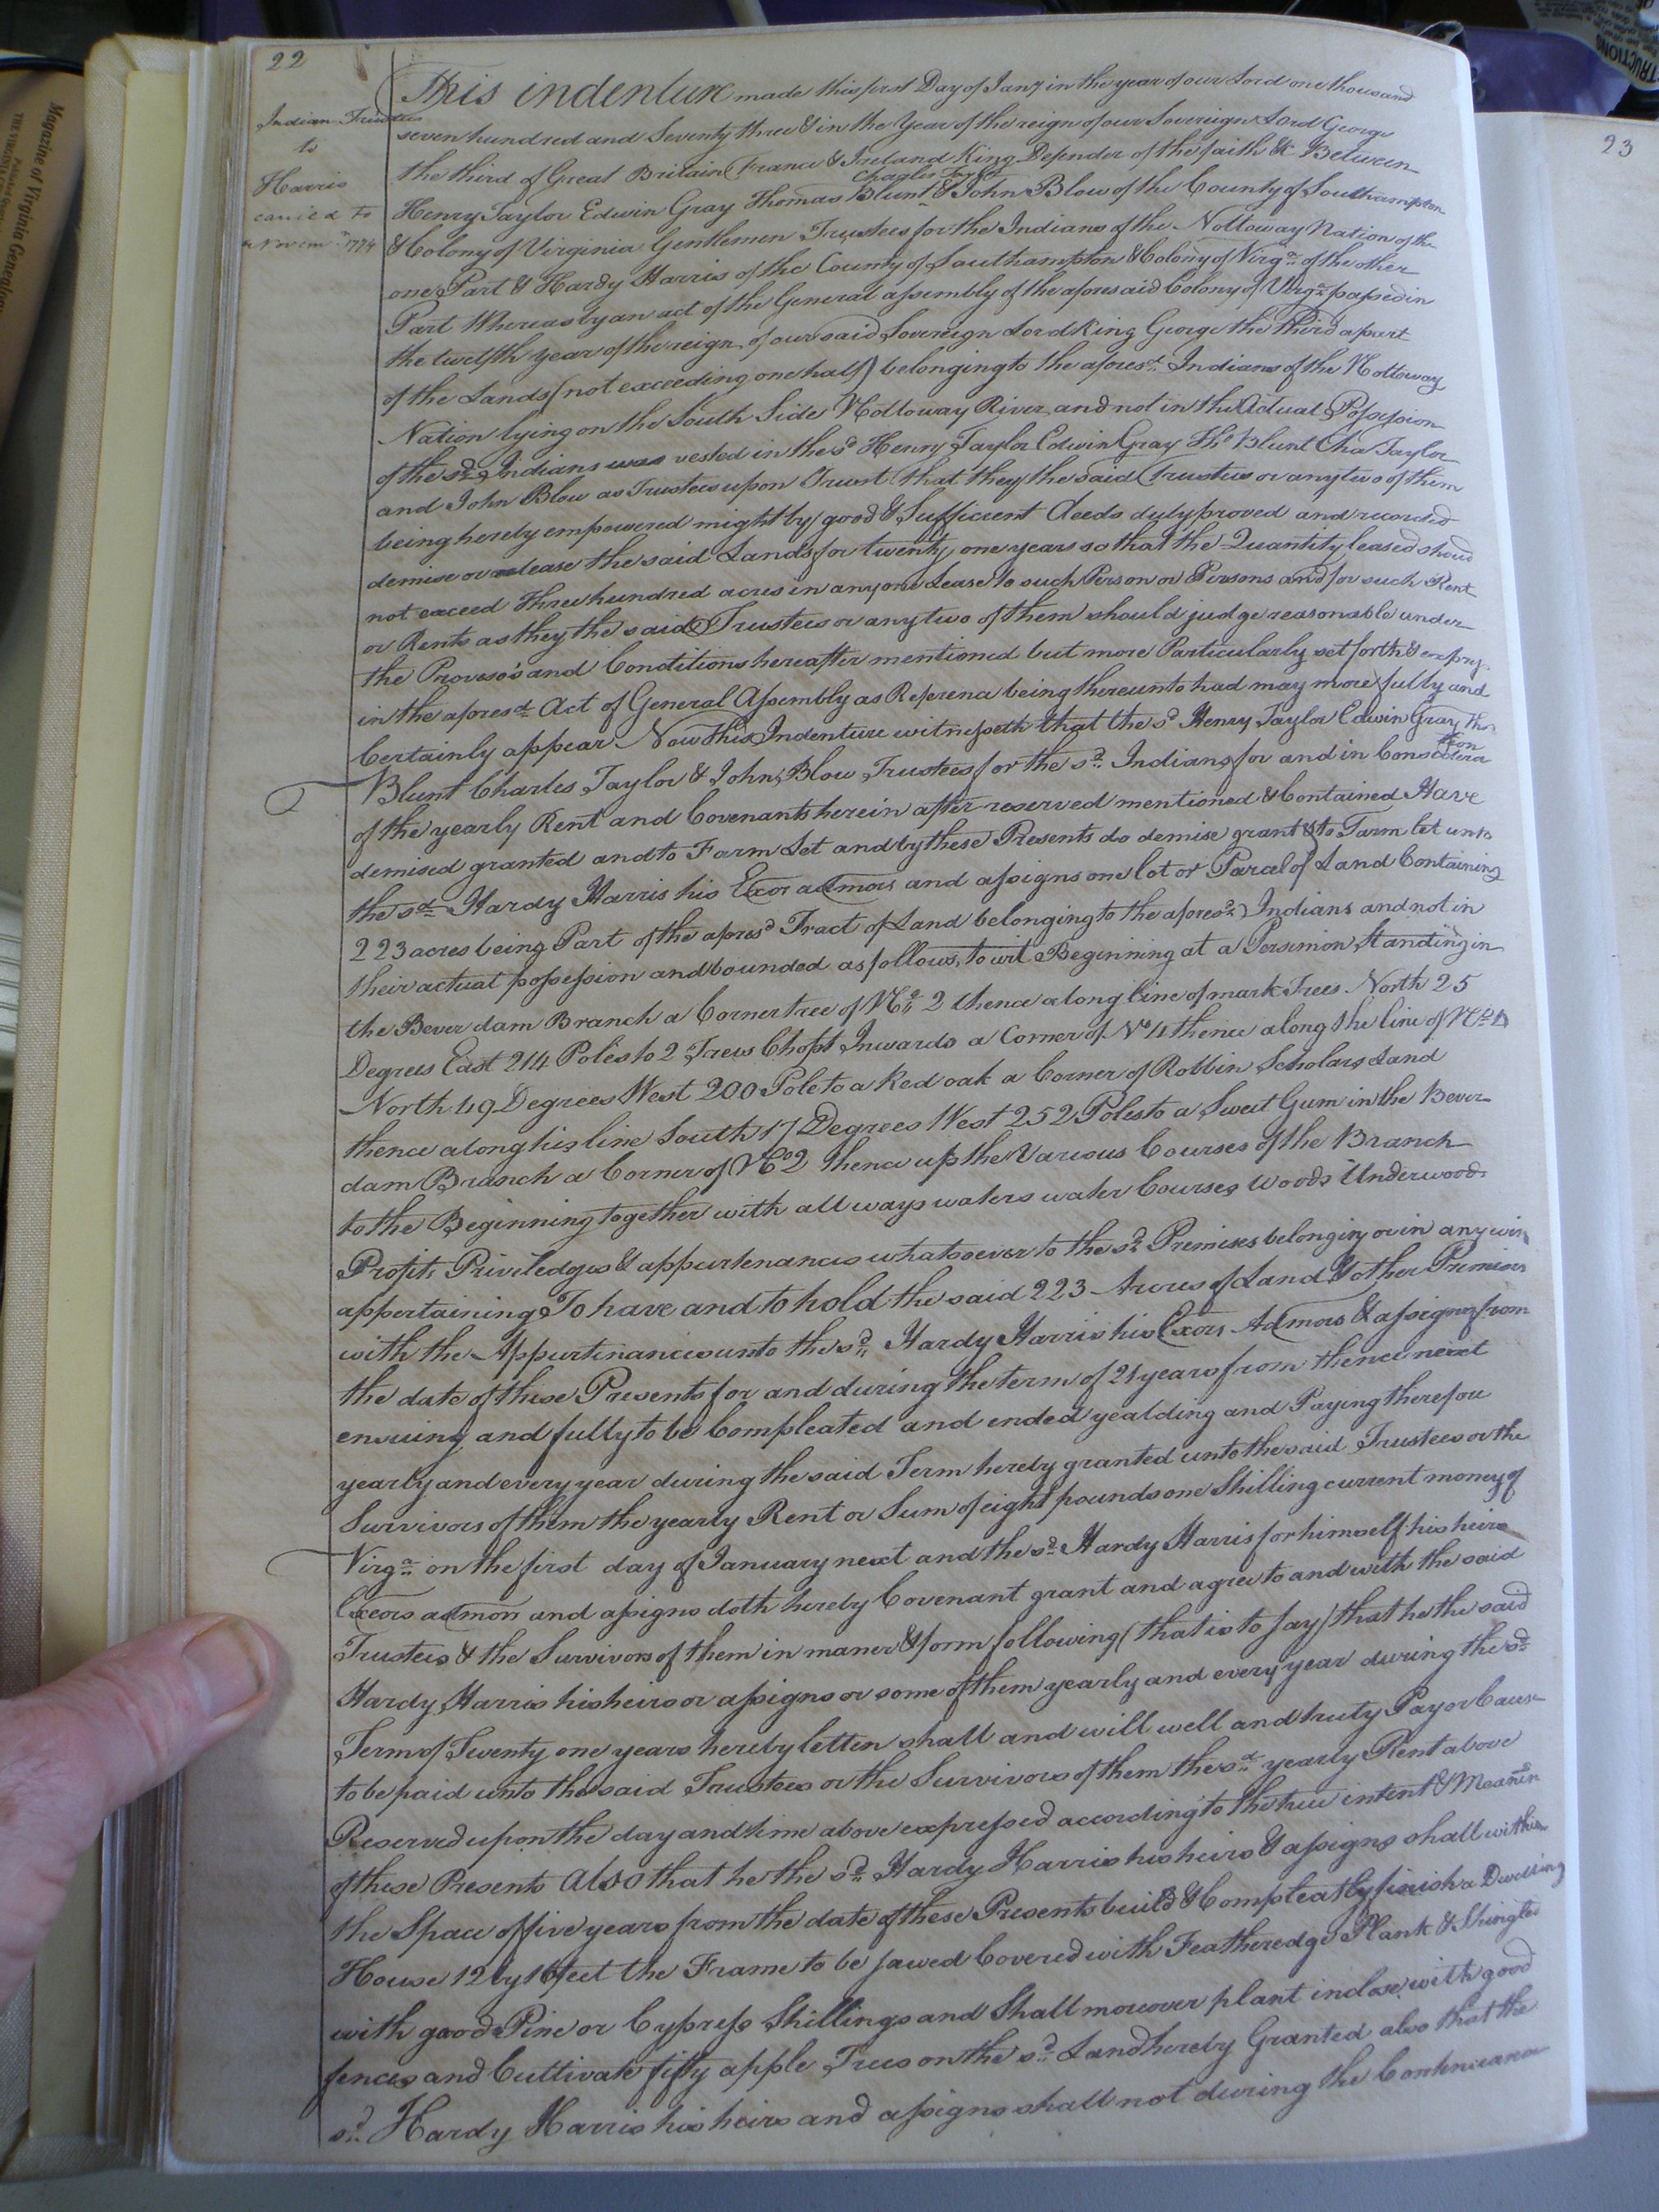 22
Indian Trustees
to
Harris
carried to
Novem. 1774
This indenture made this first Day of Jany in the year of our Lord one thousand
seven hundred and Seventy three & in the Year of the reign of our Sovereign Lord George
the third of Great Britain France & Ireland King Defender of the faith &c Between
Charles Taylor
Henry Taylor Edwin Gray Thomas Blunt & John Blow of the County of Southampton
& Colony of Virginia Gentlemen Trustees for the Indians of the Nottoway Nation of the
one Part & Hardy Harris of the County of Southampton & Colony of Virga. of the other
Part Whereas by an act of the General assembly of the aforesaid Colony of Virga. passed in
the twelfth year of the reign of our said Sovereign Lord King George the Third a part
of the Lands (not exceeding one half) belonging to the aforesd. Indians of the Nottoway
Nation lying on the South Side Nottoway River and not in the Actual Possession
of the sd. Indians was vested in the sd Henry Taylor Edwin Gray Tho Blunt Cha Taylor
and John Blow as Trustees upon Trust (that they the said Trustees or any two of them
being hereby empowered might by good & Sufficient deeds duly proved and recorded
demise or lease the said Lands for twenty one years so that the Quantity leased shoud
not exceed three hundred acres in any one Lease to such Person or Persons and for such Rent
or Rents as they the said Trustees or any two of them should judge reasonable under
the Proviso's and Conditions hereafter mentioned but more Particularly set forth & expres
in the aforesd. Act of General Assembly as Referenc being thereunto had may more fully and
Certainly appear Now this Indenture witnesseth that the sd Henry Taylor Edwin Gray Tho
tion
Blunt Charles Taylor & John Blow Trustees for the sd. Indians for and in Considera
of the yearly Rent and Covenants herein after reserved mentioned & Contained Have
demised granted and to Farm Let and by these Presents do demise grant & to Farm let unto
the sd. Hardy Harris his Exor admors and assigns one lot or Parcel of Land Containing
223 acres being Part of the aforesd Tract of Land belonging to the aforesd. Indians and not in
their actual possession and bounded as follows, to wit Beginning at a Persimon Standing in
the Bever dam Branch a Corner tree of No. 2 thence along line of mark Trees North 25
Degrees East 214 Poles to 2 Trees Chopt Inwards a Corner of No 4 thence along the line of No 4
North 49 Degrees West 200 Pole to a Red oak a Corner of Robbin Scholars Land
thence along his line South 17 Degrees West 252 Poles to a Sweet Gum in the Bever
dam Branch a Corner of No 2 thence up the Various Courses of the Branch
to the Beginning together with all ways waters water Courses Woods Underwoods
Profits Priviledges & appurtenances whatsoever to the sd. Premises belonging or in any wise
appertaining To have and to hold the said 223 Acres of Land & other Premises
with the Appurtinancies unto the sd. Hardy Harris his Exors Admors & assigns from
the date of these Presents for and during the term of 21 years from thence next
ensuing and fully to be Compleated and ended yealding and Paying therefore
yearly and every year during the said Term hereby granted unto the said Trustees or the
Survivors of them the yearly Rent or Sum of eight pounds one Shilling current money of
Virga. on the first day of January next and the sd. Hardy Harris for himself his heirs
Exors admors and assigns doth hereby Covenant grant and agree to and with the said
Trustees & the Survivors of them in maner & form following (that is to say) that he the said
Hardy Harris his heirs or assigns or some of them yearly and every year during the sd.
Term of Twenty one years hereby letten shall and will well and truly Pay or Cause
to be paid unto the said Trustees or the Survivors of them the sd. yearly Rent above
Reserved upon the day and time above expressed according to the true intent & Meanin
of these Presents Also that he the sd. Hardy Harris his heirs & assigns shall within
the Space of five years from the date of these Presents build & Compleatly finish a Dwelling
House 12 by 16 feet the Frame to be sawed Covered with Featheredge Plank & Shingled
with good Pine or Cypress Shillings and Shall moreover plant inclose with good
fences and Cultivate fifty apple Trees on the sd. Land hereby Granted also that the
sd. Hardy Harris his heirs and assigns shall not during the Continuance
23
Magazine of Virginia Genealogy